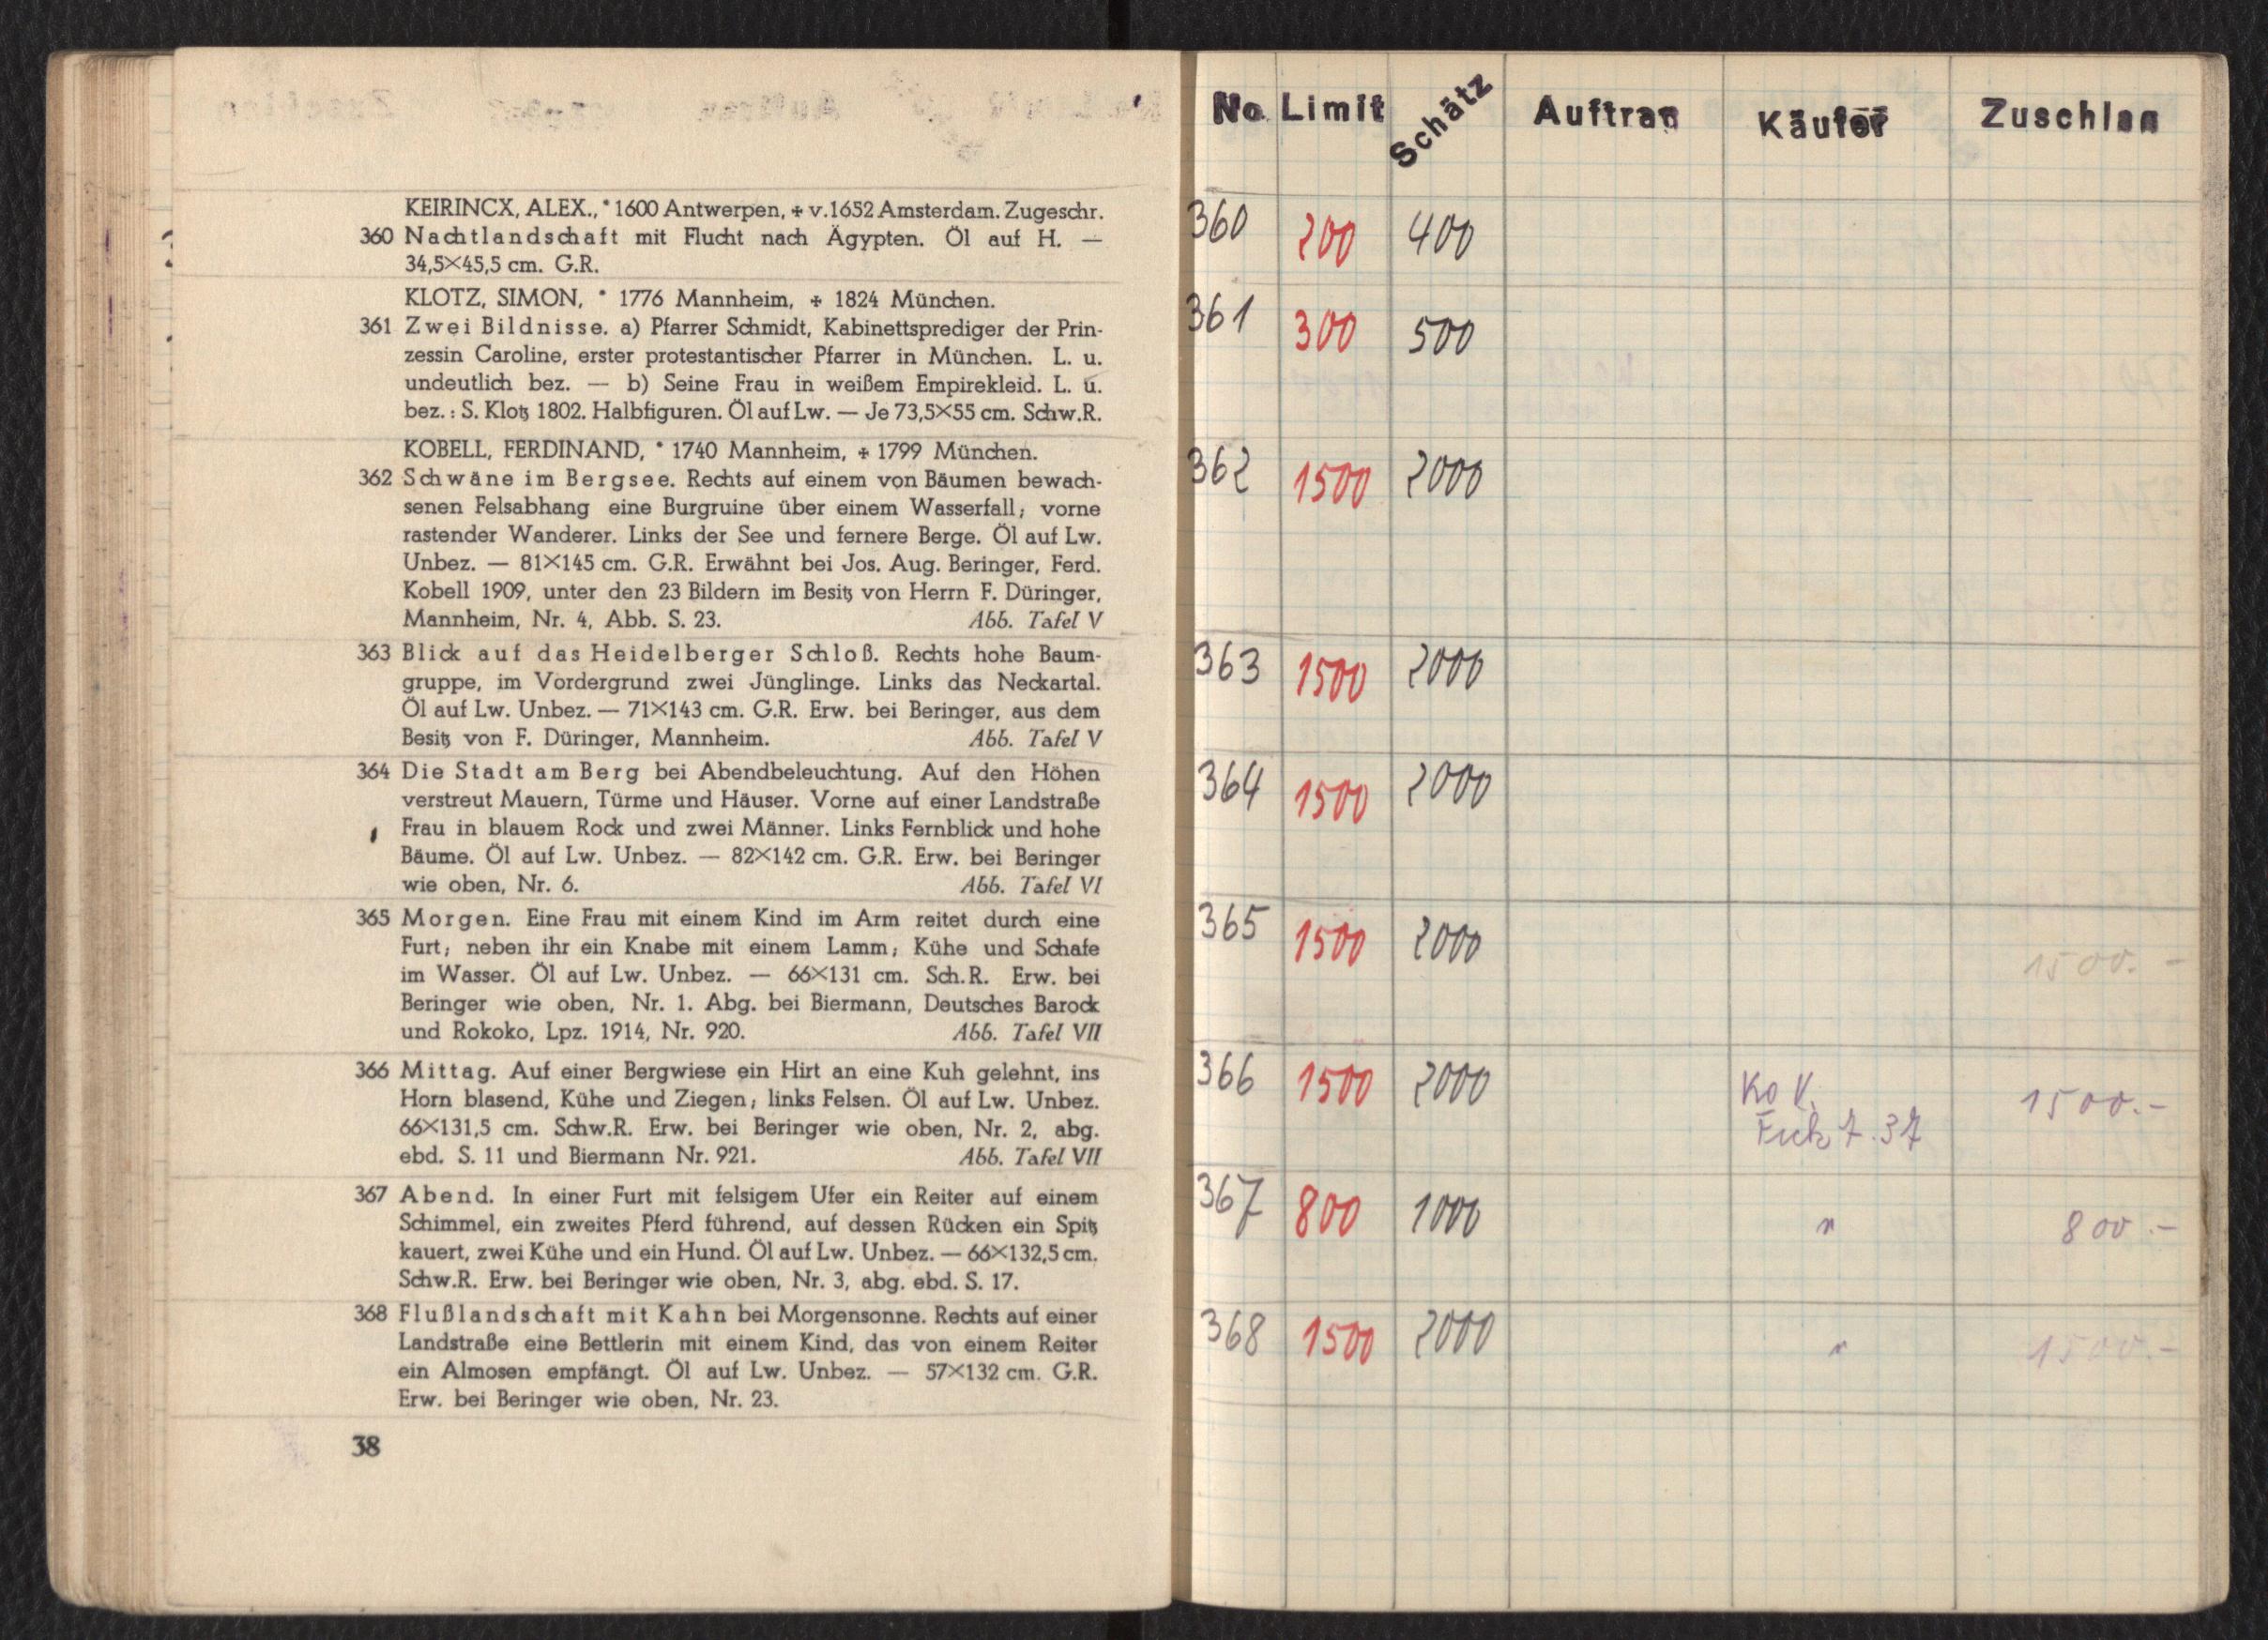 KEIRINCX, ALEX., * 1600 Antwerpen, + v. 1652 Amsterdam. Zugeschr.
360 Nachtlandschaft mit Flucht nach Ägypten. Öl auf H. —
34,5×45,5 cm. G.R.
KLOTZ, SIMON, * 1776 Mannheim, + 1824 München.
361 Zwei Bildnisse. a) Pfarrer Schmidt, Kabinettsprediger der Prin-
zessin Caroline, erster protestantischer Pfarrer in München. L. u.
undeutlich bez. — b) Seine Frau in weißem Empirekleid. L. u.
bez.: S. Klotz 1802. Halbfiguren. Öl auf Lw. — Je 73,5×55 cm. Schw.R.
KOBELL, FERDINAND, * 1740 Mannheim, + 1799 München.
362 Schwäne im Bergsee. Rechts auf einem von Bäumen bewach-
senen Felsabhang eine Burgruine über einem Wasserfall; vorne
rastender Wanderer. Links der See und fernere Berge. Öl auf Lw.
Unbez. — 81×145 cm. G.R. Erwähnt bei Jos. Aug. Beringer, Ferd.
Kobell 1909, unter den 23 Bildern im Besitz von Herrn F. Düringer,
Mannheim, Nr. 4, Abb. S. 23. Abb. Tafel V
363 Blick auf das Heidelberger Schloß. Rechts hohe Baum-
gruppe, im Vordergrund zwei Jünglinge. Links das Neckartal.
Öl auf Lw. Unbez. — 71×143 cm. G.R. Erw. bei Beringer, aus dem
Besitz von F. Düringer, Mannheim. Abb. Tafel V
364 Die Stadt am Berg bei Abendbeleuchtung. Auf den Höhen
verstreut Mauern, Türme und Häuser. Vorne auf einer Landstraße
Frau in blauem Rock und zwei Männer. Links Fernblick und hohe
Bäume. Öl auf Lw. Unbez. — 82×142 cm. G.R. Erw. bei Beringer
wie oben, Nr. 6. Abb. Tafel VI
365 Morgen. Eine Frau mit einem Kind im Arm reitet durch eine
Furt; neben ihr ein Knabe mit einem Lamm; Kühe und Schafe
im Wasser. Öl auf Lw. Unbez. — 66×131 cm. Sch.R. Erw. bei
Beringer wie oben, Nr. 1. Abg. bei Biermann, Deutsches Barock
und Rokoko, Lpz. 1914, Nr. 920. Abb. Tafel VII
366 Mittag. Auf einer Bergwiese ein Hirt an eine Kuh gelehnt, ins
Horn blasend, Kühe und Ziegen; links Felsen. Öl auf Lw. Unbez.
66×131,5 cm. Schw.R. Erw. bei Beringer wie oben, Nr. 2, abg.
ebd. S. 11 und Biermann Nr. 921. Abb. Tafel VII
367 Abend. In einer Furt mit felsigem Ufer ein Reiter auf einem
Schimmel, ein zweites Pferd führend, auf dessen Rücken ein Spitz
kauert, zwei Kühe und ein Hund. Öl auf Lw. Unbez. — 66×132,5 cm.
Schw.R. Erw. bei Beringer wie oben, Nr. 3, abg. ebd. S. 17.
368 Flußlandschaft mit Kahn bei Morgensonne. Rechts auf einer
Landstraße eine Bettlerin mit einem Kind, das von einem Reiter
ein Almosen empfängt. Öl auf Lw. Unbez. — 57×132 cm. G.R.
Erw. bei Beringer wie oben, Nr. 23.
38
No Limit Schätz Auftrag Käufer Zuschlag
360 200 400
361 300 500
362 1500 2000
363 1500 2000
364 1500 2000
365 1500 2000 1500.-
366 1500 2000 1500.-
367 800 1000 " 800.-
368 1500 2000 " 1500.-